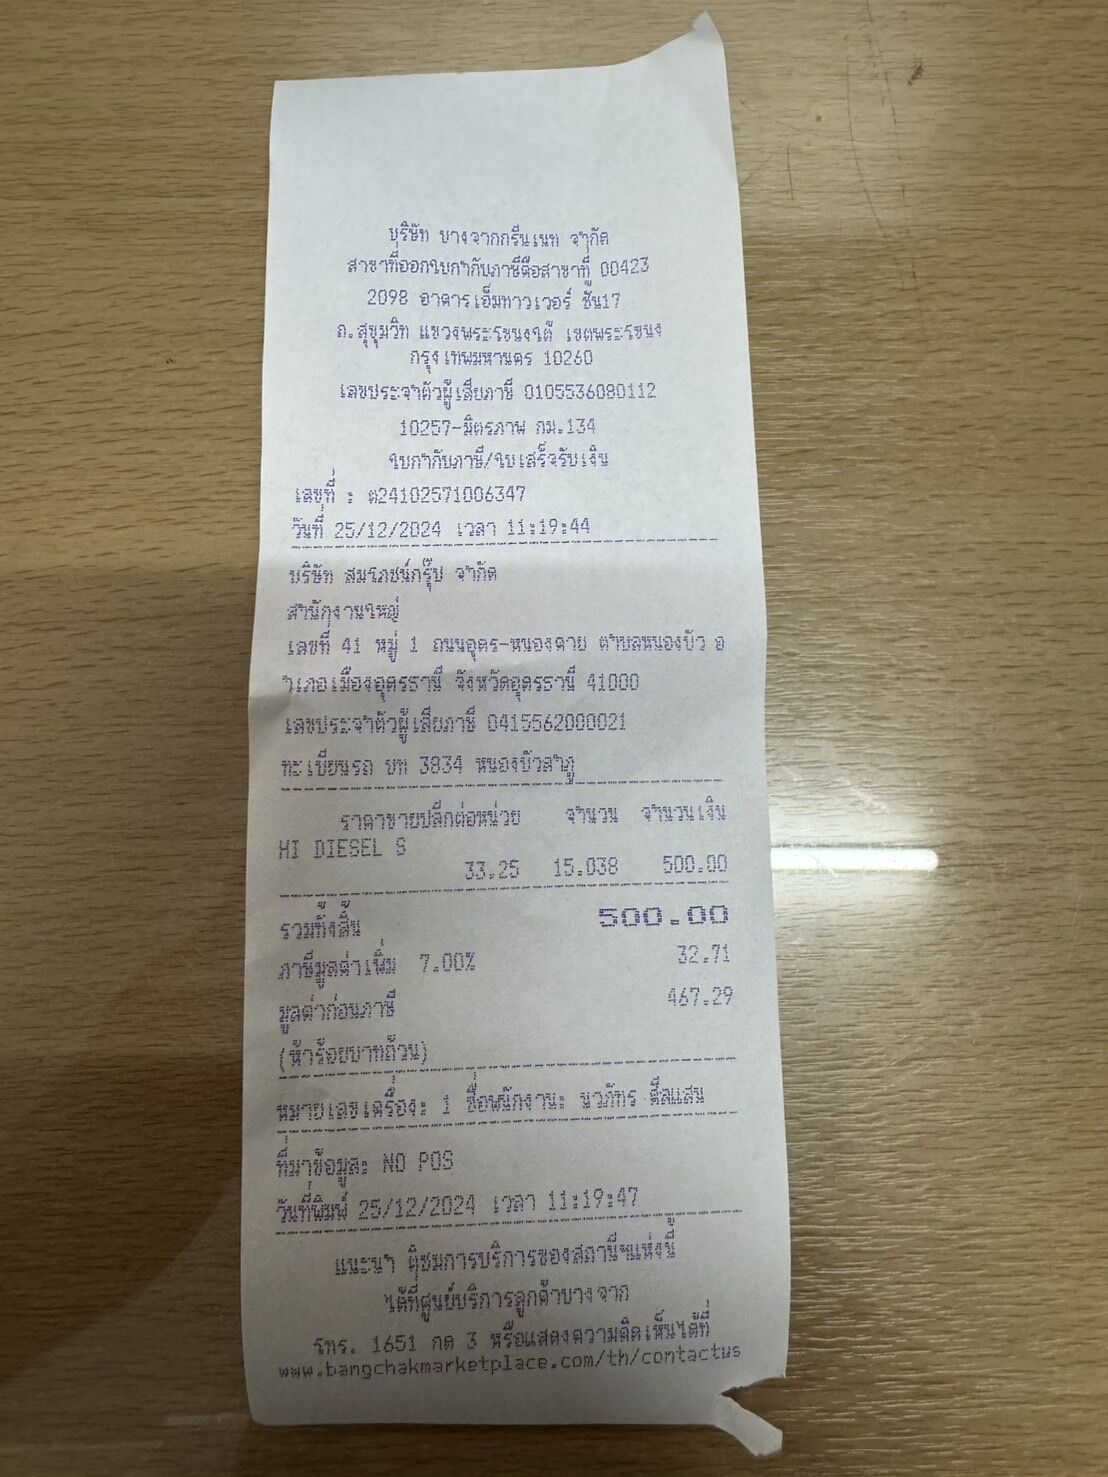 บริษัท บางจากกรีนเนท จำกัด
สาขาที่ออกใบกำกับภาษีคือสาขาที่ 00423
2098 อาคารเอ็มทาวเวอร์ ชั้น17
ถ.สุขุมวิท แขวงพระโขนงใต้ เขตพระโขนง
กรุงเทพมหานคร 10260
เลขประจำตัวผู้เสียภาษี 0105536080112
10257-มิตรภาพ กม.134
ใบกำกับภาษี/ใบเสร็จรับเงิน
เลขที่ : ต24102571006347
วันที่ 25/12/2024 เวลา 11:19:44
บริษัท สมโภชน์กรุ๊ป จำกัด
สำนักงานใหญ่
เลขที่ 41 หมู่ 1 ถนนอุดร-หนองคาย ตำบลหนองบัว อ
ำเภอเมืองอุดรธานี จังหวัดอุดรธานี 41000
เลขประจำตัวผู้เสียภาษี 0415562000021
ทะเบียนรถ บท 3834 หนองบัวลำภู
ราคาขายปลีกต่อหน่วย จำนวน จำนวนเงิน
HI DIESEL S
33.25 15.038 500.00
รวมทั้งสิ้น 500.00
ภาษีมูลค่าเพิ่ม 7.00% 32.71
มูลค่าก่อนภาษี 467.29
(ห้าร้อยบาทถ้วน)
หมายเลขเครื่อง: 1 ชื่อพนักงาน: นวภัทร ศีลแสน
ที่มาข้อมูล: NO POS
วันที่พิมพ์ 25/12/2024 เวลา 11:19:47
แนะนำ ติชมการบริการของสถานีฯแห่งนี้
ได้ที่ศูนย์บริการลูกค้าบางจาก
โทร. 1651 กด 3 หรือแสดงความคิดเห็นได้ที่
www.bangchakmarketplace.com/th/contactus